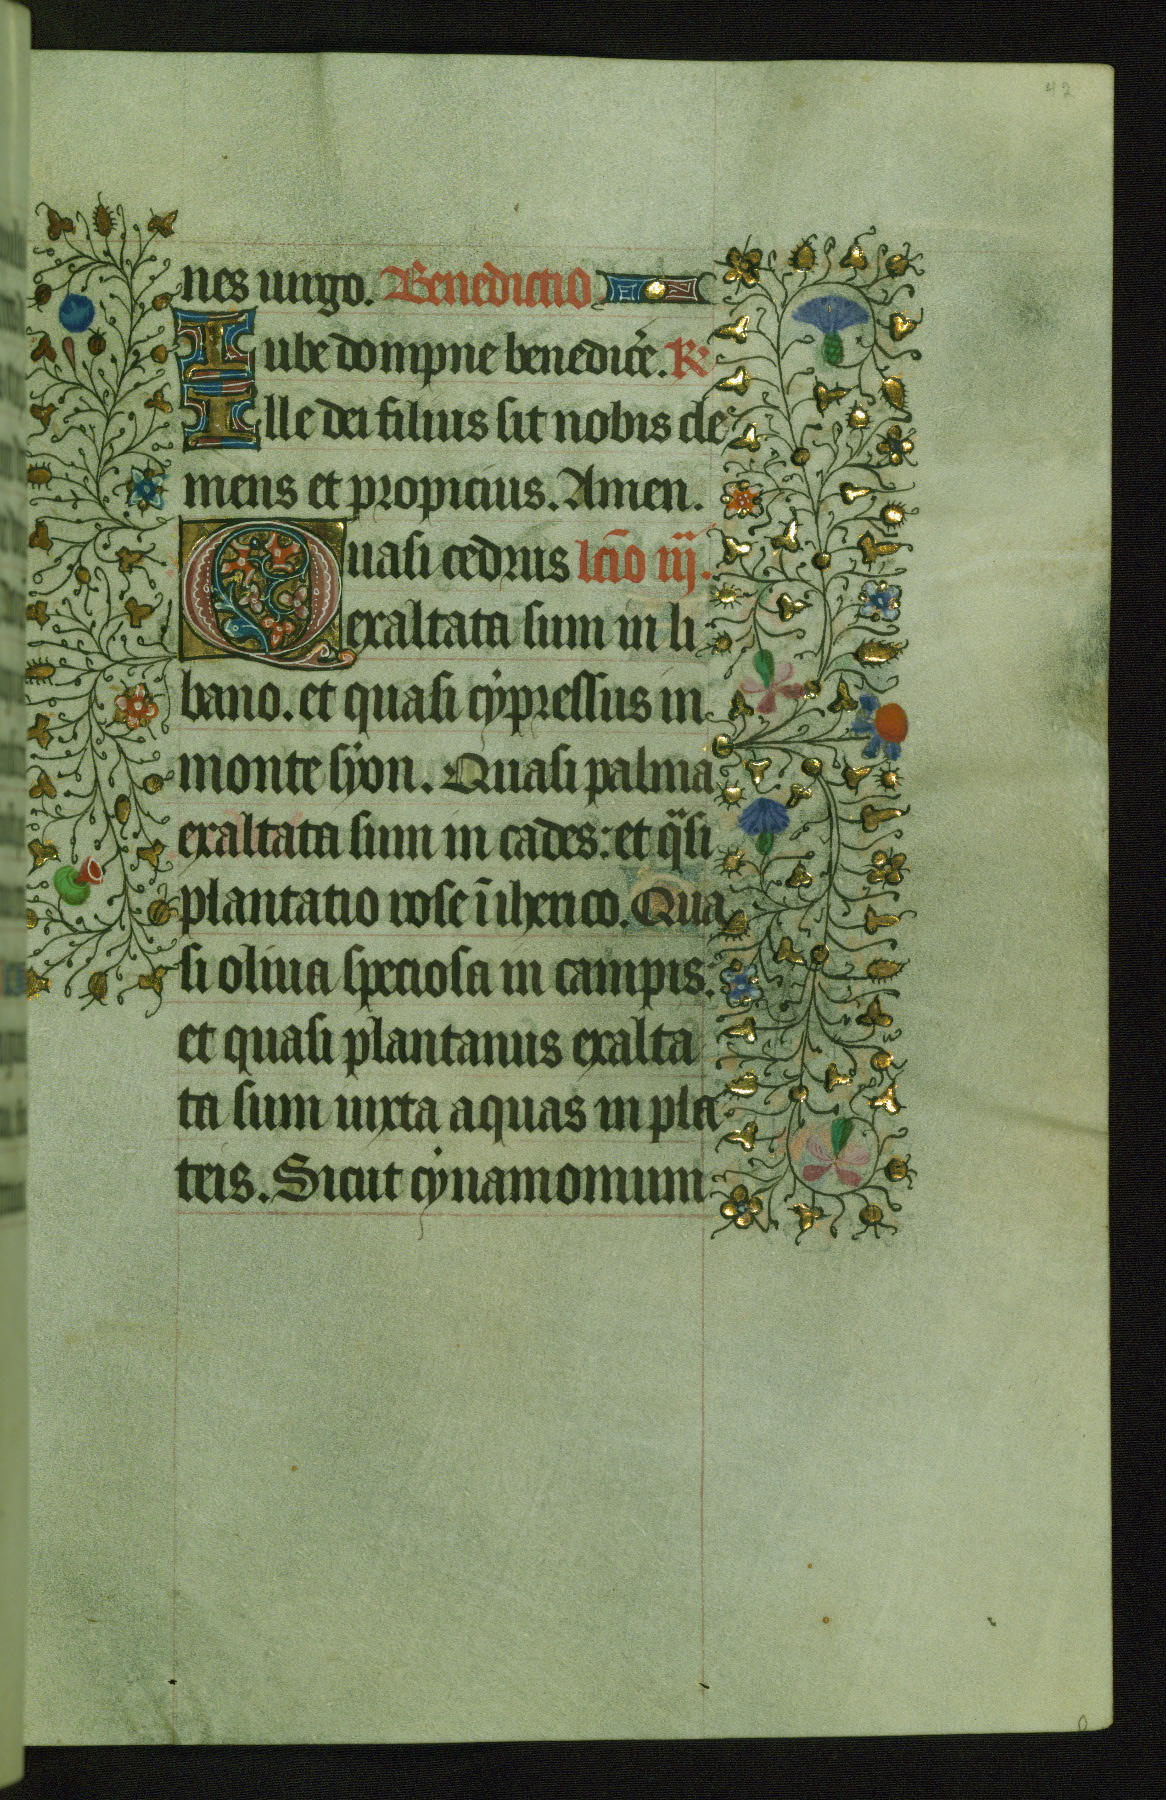 42
nes uirgo. Benedictio
Iube dompne benedic̄e. R
Ille dei filius sit nobis cle
mens et propicius. Amen.
Quasi cedrus lcīo iij.
exaltata sum in li
bano. et quasi cypressus in
monte syon. Quasi palma
exaltata sum in cades: et q̄si
plantatio rose ī iherico. Qua
si oliua speciosa in campis:
et quasi plantanus exalta
ta sum iuxta aquas in pla
teis. Sicut cynamomum